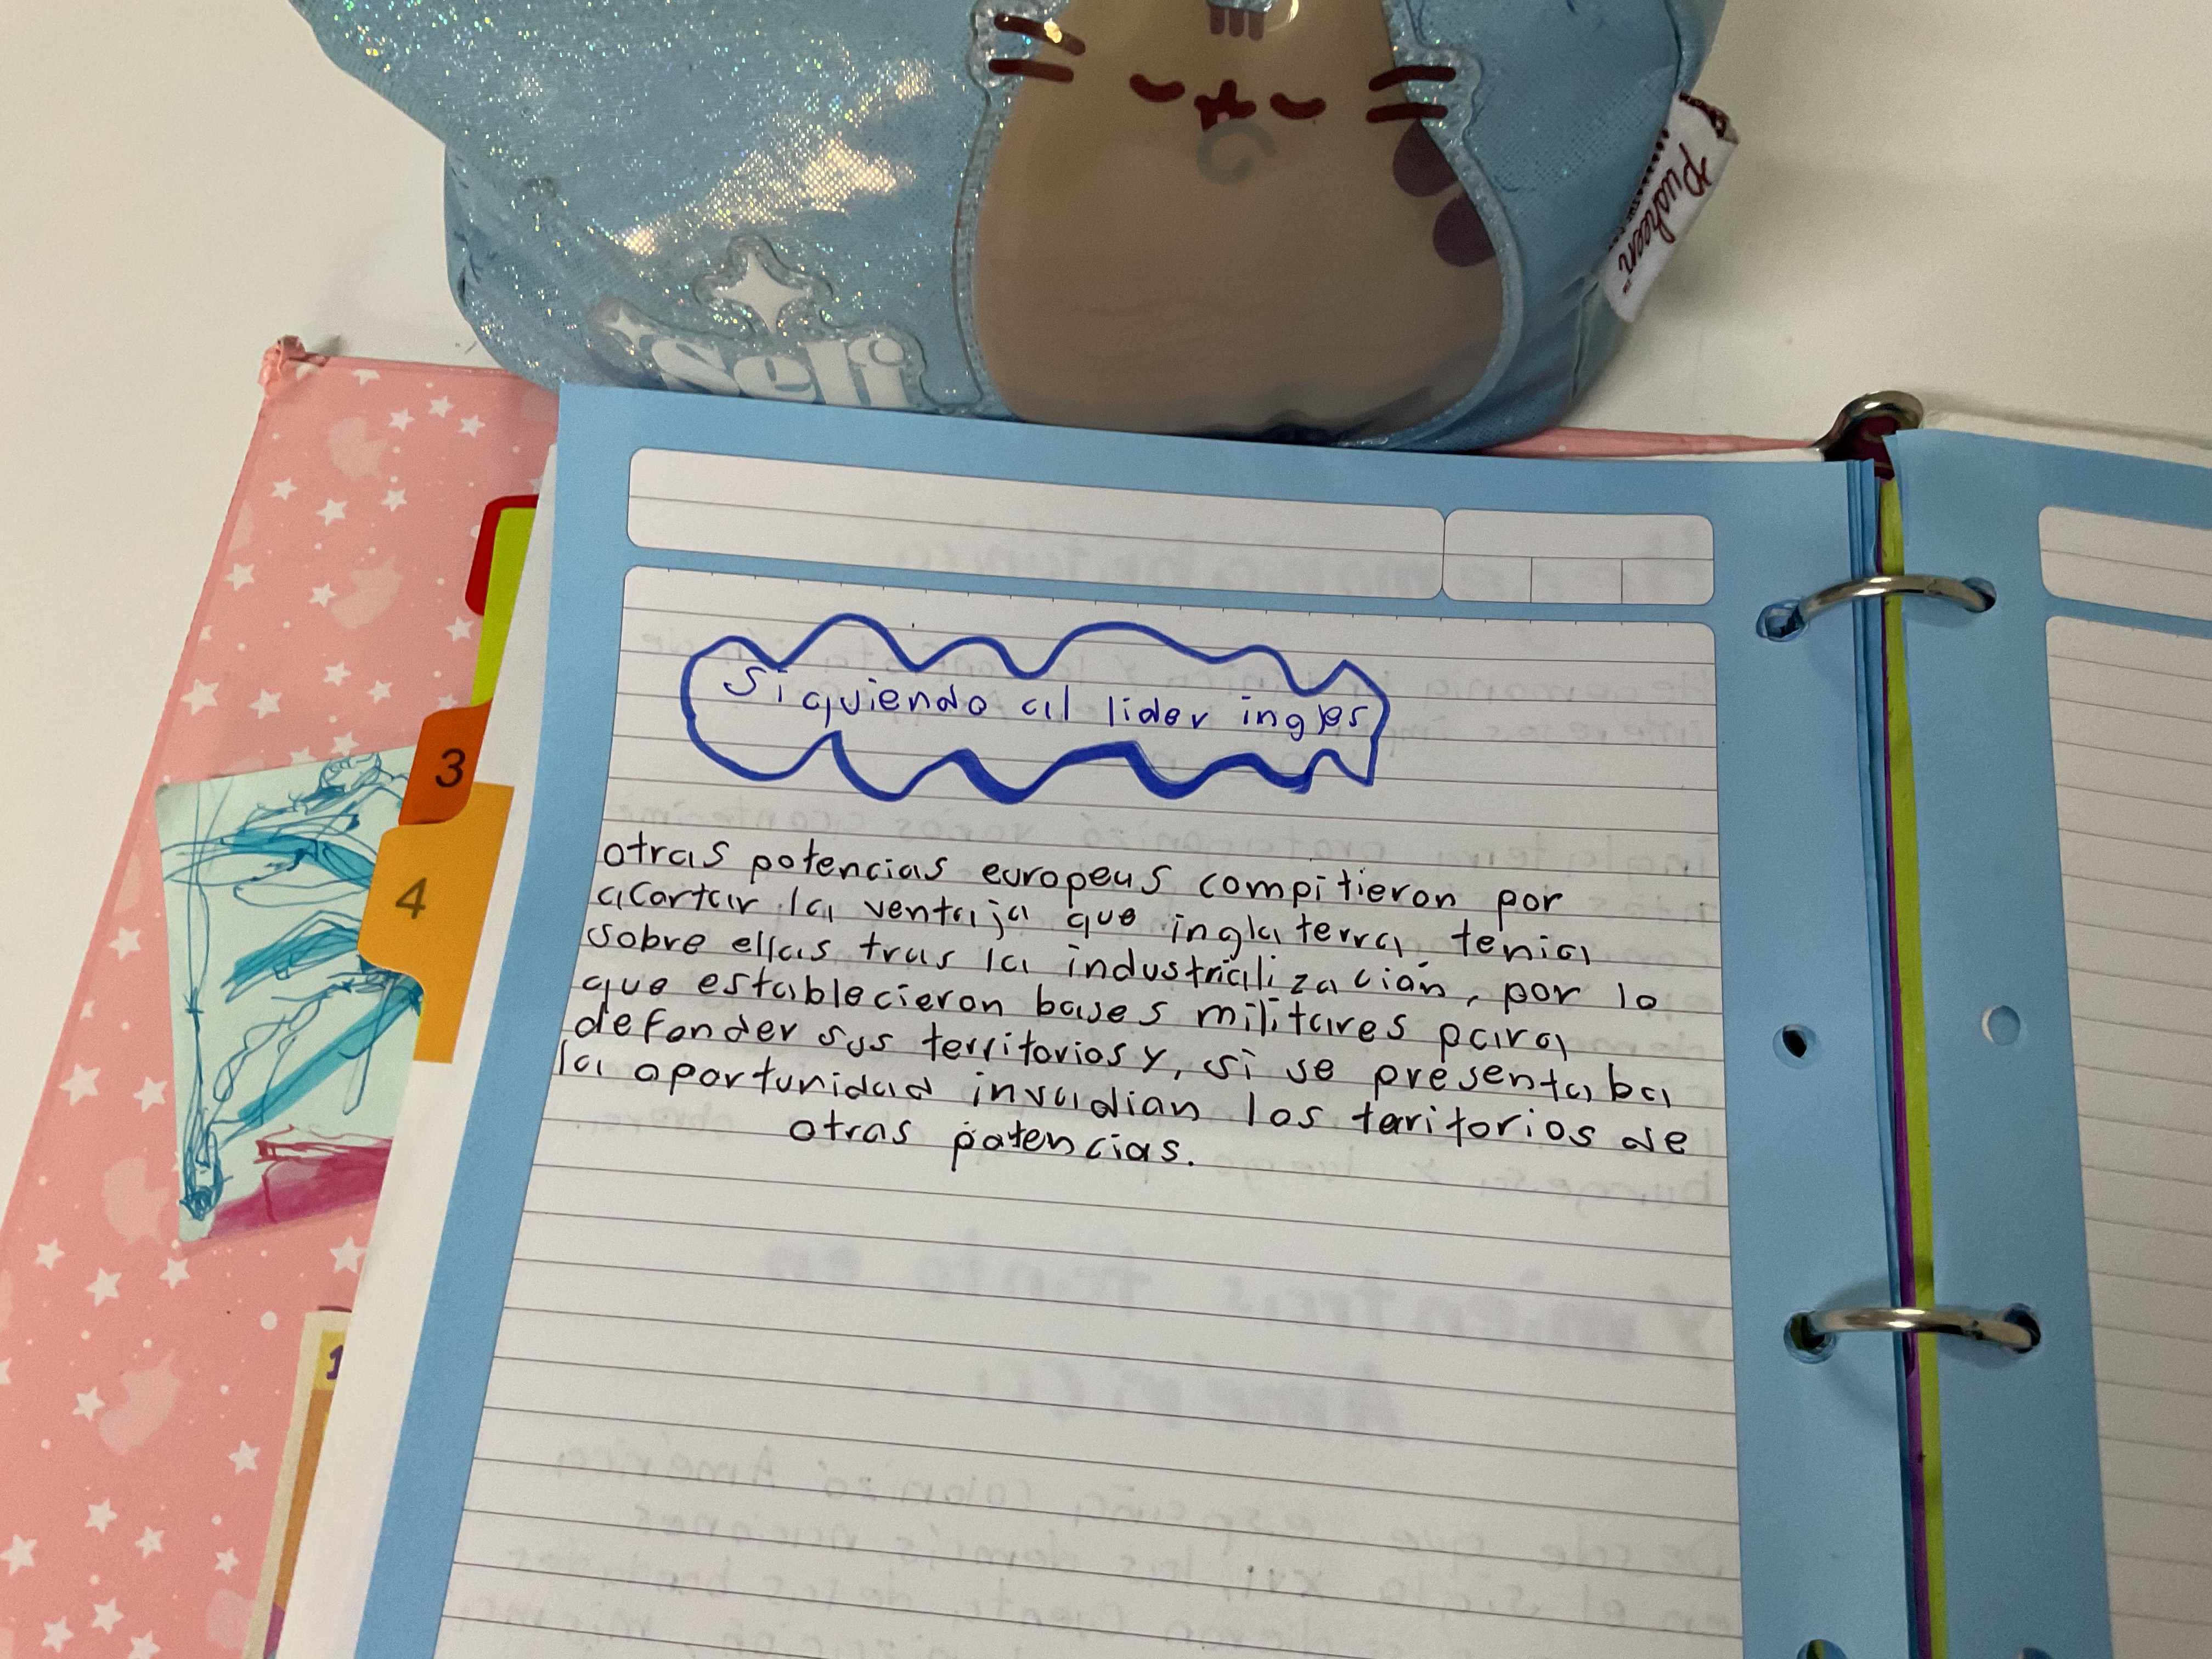 Pusheen
Self
3
4
1
Siguiendo al lider ingles
otras potencias europeas compitieron por
acortar la ventaja que inglaterra tenia
sobre ellas tras la industrialización, por lo
que establecieron bases militares para
defender sus territorios y, si se presentaba
la oportunidad invadian los territorios de
otras potencias.